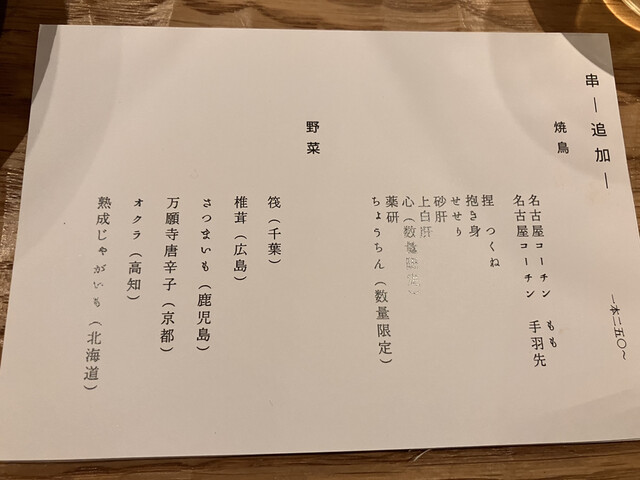 串―追加―
一本二五〇～
焼鳥
名古屋コーチン　もも
名古屋コーチン　手羽先
捏　つくね
抱き身
せせり
砂肝
上白肝
心（数量限定）
薬研
ちょうちん（数量限定）
野菜
筏（千葉）
椎茸（広島）
さつまいも（鹿児島）
万願寺唐辛子（京都）
オクラ（高知）
熟成じゃがいも（北海道）